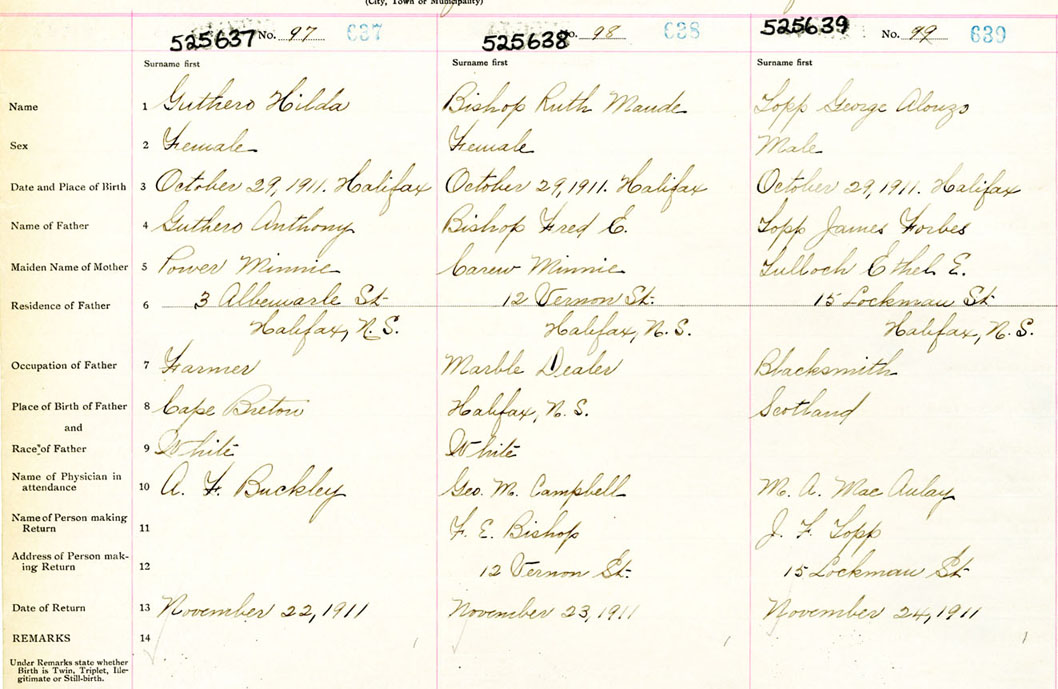 (City, Town or Municipality)
525637 No. 97 637 525638 No. 98 638 525639 No. 99 639
Surname first Surname first Surname first
Name 1 Guthero Hilda Bishop Ruth Maude Topp George Alonzo
Sex 2 Female Female Male
Date and Place of Birth 3 October 29, 1911. Halifax October 29, 1911. Halifax October 29, 1911. Halifax
Name of Father 4 Guthero Anthony Bishop Fred E. Topp James Forbes
Maiden Name of Mother 5 Power Minnie Carew Minnie Tulloch Ethel E.
Residence of Father 6 3 Albemarle St. 12 Vernon St. 15 Lockman St
Halifax, N.S. Halifax, N.S. Halifax, N.S.
Occupation of Father 7 Farmer Marble Dealer Blacksmith
Place of Birth of Father 8 Cape Breton Halifax, N.S. Scotland
and
Race of Father 9 White White
Name of Physician in
attendance 10 A. F. Buckley Geo. M. Campbell M. A. MacAulay
Name of Person making
Return 11 F. E. Bishop J. F. Topp
Address of Person mak-
ing Return 12 12 Vernon St. 15 Lockman St
Date of Return 13 November 22, 1911 November 23, 1911 November 24, 1911
REMARKS 14
Under Remarks state whether
Birth is Twin, Triplet, Ille-
gitimate or Still-birth.